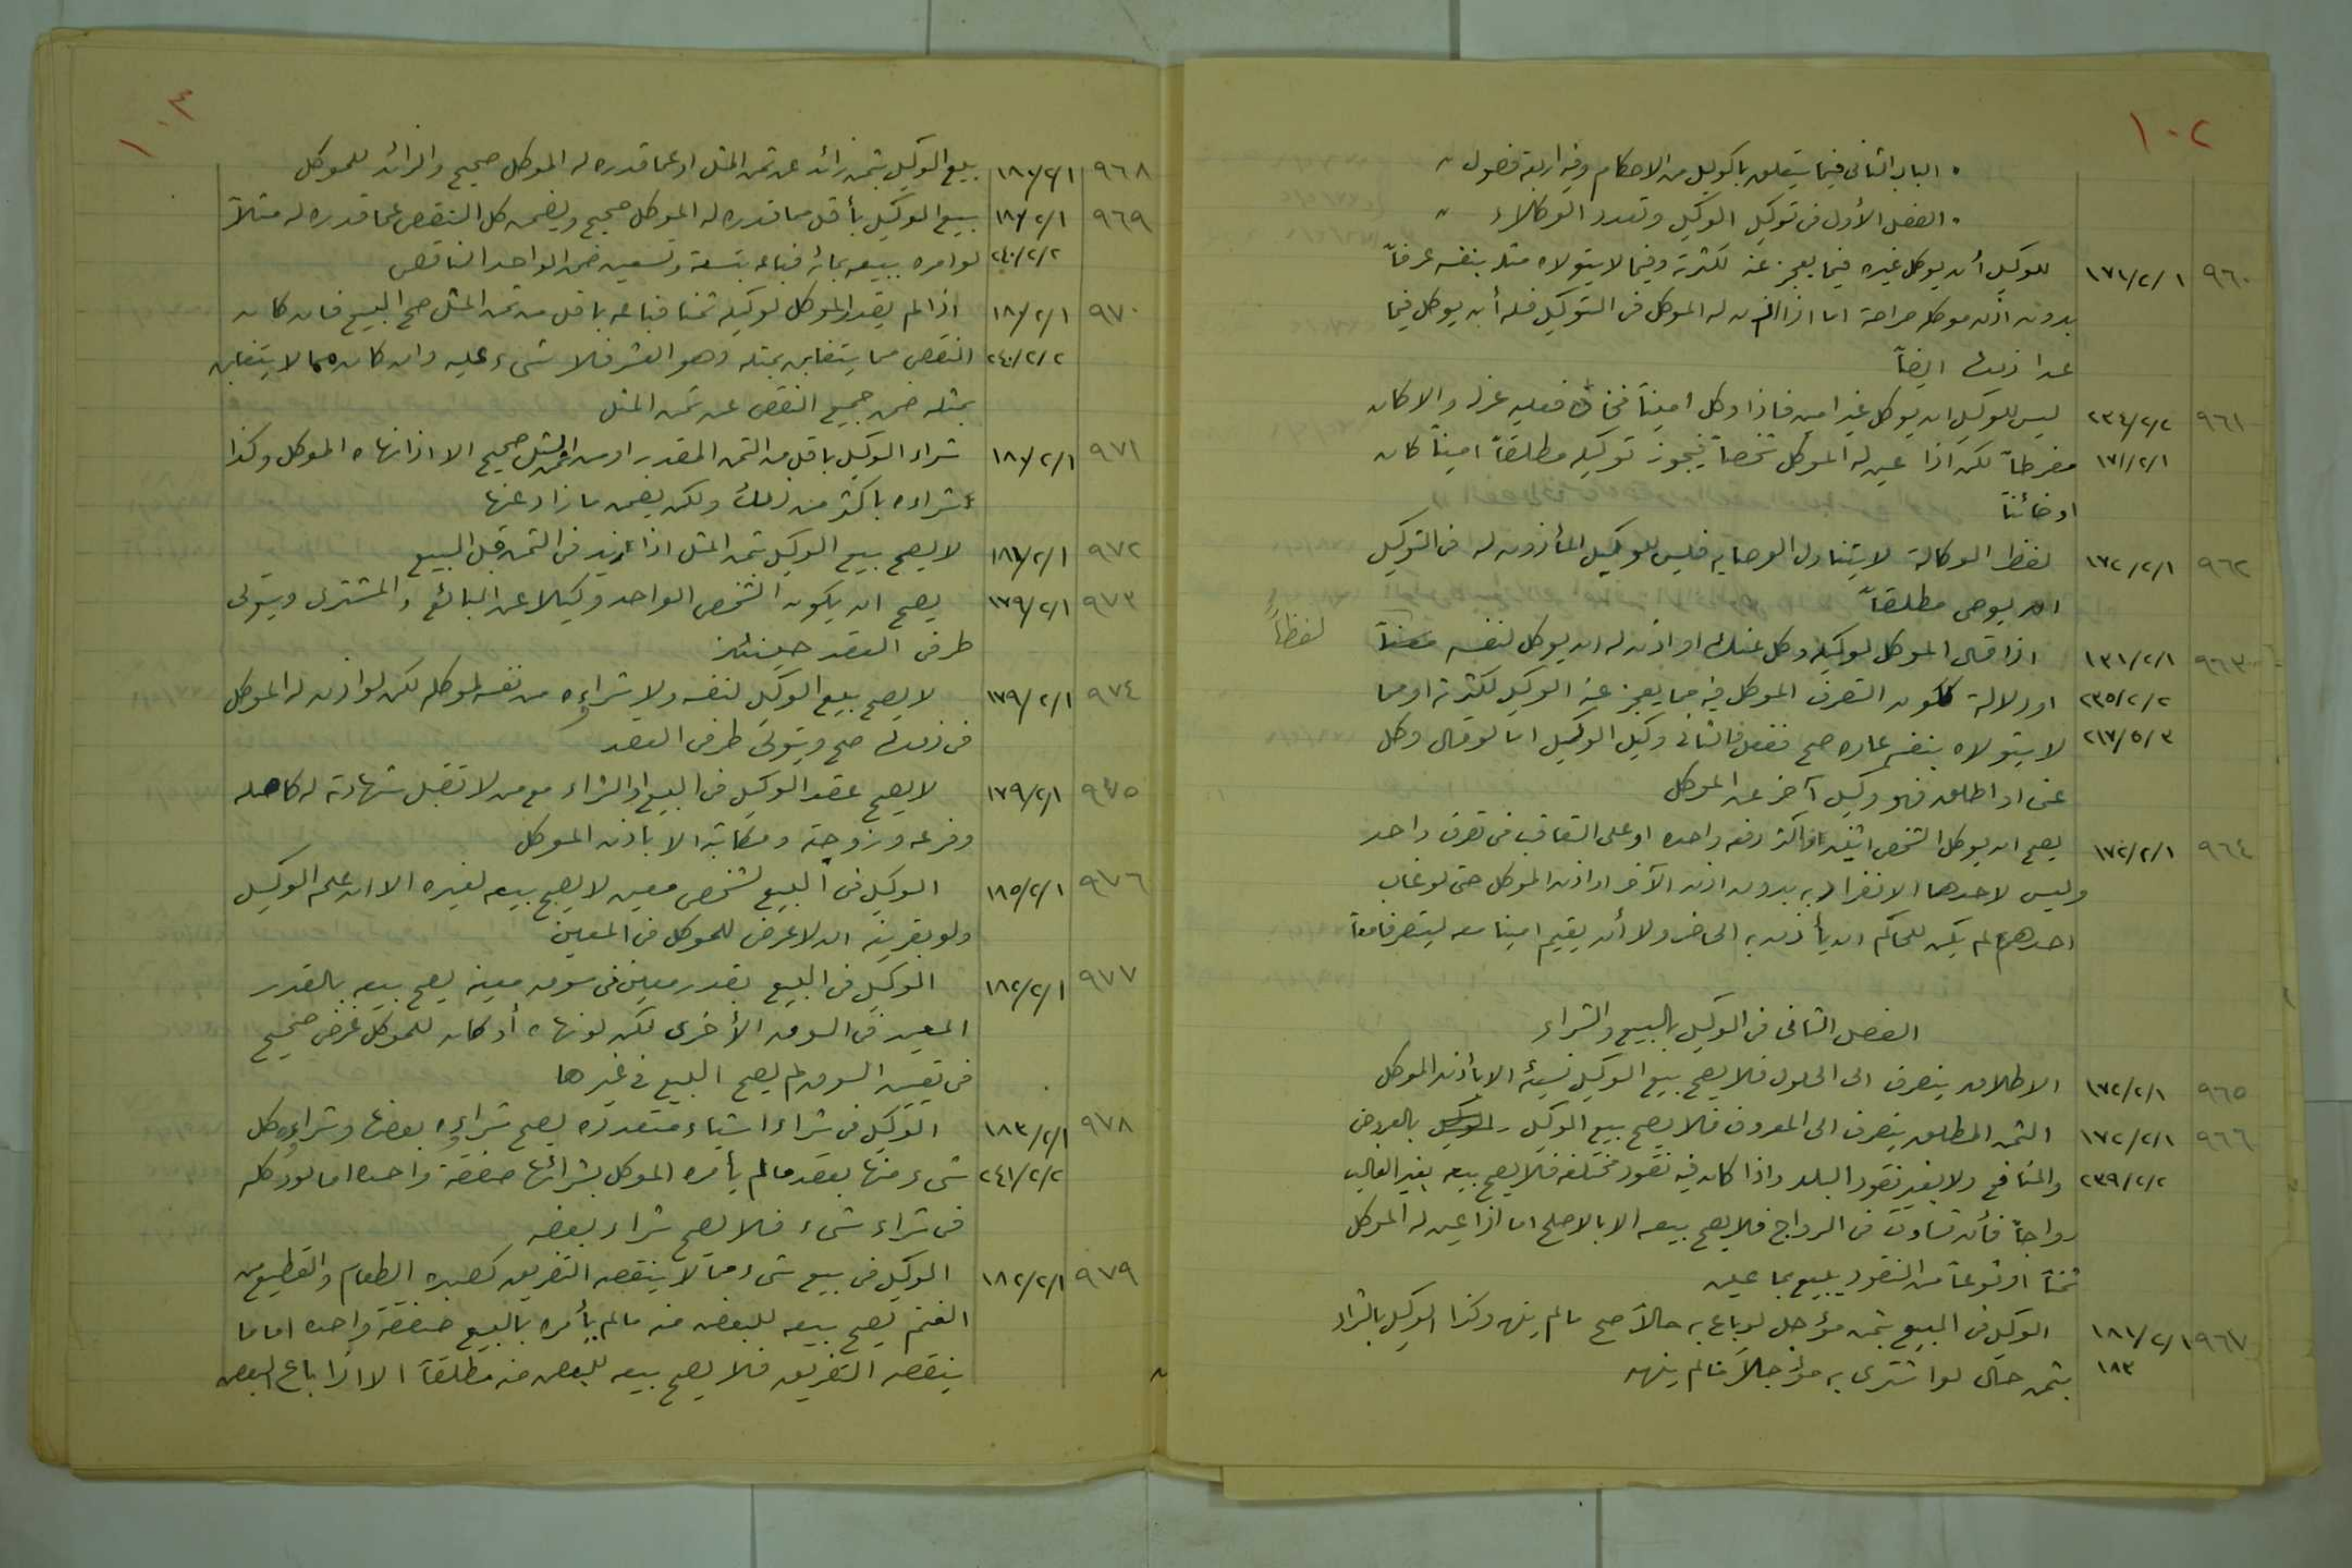 ١٠٢
« الباب الثاني فيما يتعلق بالوكيل من الاحكام وفيه اربعة فصول »
« الفصل الأول في توكيل الوكيل وتعدد الوكلاء »
٩٦٠ ١٧١/٢/١ للوكيل أن يوكل غيره فيما يعجز عنه لكثرته وفيما لا يتولاه مثله بنفسه عرفاً
بدون اذن موكله صراحة اما اذا اذن له الموكل في التوكيل فله أن يوكل فيما
عدا ذلك ايضاً
٩٦١ ٢٣٤/٢/٢ ليس للوكيل ان يوكل غير امين فاذا وكل اميناً فخان فعليه عزله والا كان
١٧١/٢/١ مفرطاً لكن اذا عين له الموكل شخصاً فيجوز توكيله مطلقاً اميناً كان
او خائناً
٩٦٢ ١٧٢/٢/١ لفظ الوكالة لا يتناول الوصايه فليس للوكيل المأذون له في التوكيل
ان يوصي مطلقاً
٩٦٣ ١٣١/٢/١ اذا قال الموكل لوكيله وكل عنك او اذن له ان يوكل لنفسه لفظاً
٢٣٥/٢/٢ او دلالة ككون التصرف الموكل فيه مما يعجز عنه الوكيل لكثرته او مما
٢١٧/٥/٣ لا يتولاه بنفسه عاده صح فعله فالثاني وكيل الوكيل اما لو قال وكل
عني او اطلق فهو وكيل آخر عن الموكل
٩٦٤ ١٧٢/٢/١ يصح ان يوكل الشخص اثنين فاكثر دفعه واحده او على التعاقب في تصرف واحد
وليس لاحدهما الانفراد به بدون اذن الآخر او اذن الموكل حتى لو غاب
احدهما لم يكن للحاكم ان يأذن به الحاضر ولا أن يقيم امينا معه ليتصرفا معاً
الفصل الثاني في الوكيل بالبيع والشراء
٩٦٥ ١٧٢/٢/١ الاطلاق ينصرف الى الحلول فلا يصح بيع الوكيل نسيئة الا بأذن الموكل
٩٦٦ ١٧٢/٢/١ الثمن المطلق ينصرف الى المعروف فلا يصح بيع الوكيل بالعروض
٢٣٩/٢/٢ والمنافع ولا بغير نقود البلد واذا كان فيه نقود مختلفه فلا يصح بيعه بغير الغالب
رواجاً فأن تساوت في الرواج فلا يصح بيعه الا بالاصلح اما اذا عين له الموكل
ثمناً او نوعاً من النقود يبيع بما عينه
٩٦٧ ١٨١/٢/١ الوكيل في المبيع بثمن مؤجل لو باع به حالاً صح ما لم ينهه وكذا الوكيل بالشراء
١٨٣ بثمن حال لو اشترى به مؤجلاً مالم ينهه
١٠٣
٩٦٨ ١٨١/٢/١ بيع الوكيل بثمن زائد عن ثمن المثل او عما قدره له الموكل صحيح والزائد للموكل
٩٦٩ ١٨١/٢/١ بيع الوكيل بأقل مما قدره له الموكل صحيح ويضمن كل النقص عما قدره له مثلاً
٢٤٠/٢/٢ لو امره ببيعه بمائه فباعه بتسعة وتسعين ضمن الواحد الناقص
٩٧٠ ١٨١/٢/١ اذا لم يقدر الموكل لوكيله ثمنا فباعه باقل من ثمن المثل صح البيع فان كان
٢٤٠/٢/٢ النقص مما يتغابن بمثله وهو العشر فلا شيء عليه وان كان مما لا يتغابن
بمثله ضمن جميع النقص عن ثمن المثل
٩٧١ ١٨١/٢/١ شراء الوكيل باقل من الثمن المقدر او من ثمن المثل صحيح الا اذا نهاه الموكل وكذا
شراءه باكثر من ذلك ولكن يضمن ما زاد عنها
٩٧٢ ١٨١/٢/١ لا يصح بيع الوكيل بثمن المثل اذا زيد في الثمن قبل البيع
٩٧٣ ١٧٩/٢/١ يصح ان يكون الشخص الواحد وكيلا عن البائع والمشتري ويتولى
طرفي العقد حينئذ
٩٧٤ ١٧٩/٢/١ لا يصح بيع الوكيل لنفسه ولا شراؤه من نفسه لموكله لكن لو اذن له الموكل
في ذلك صح ويتولى طرفي العقد
٩٧٥ ١٧٩/٢/١ لا يصح عقد الوكيل في البيع او الشراء مع من لا تقبل شهادته له كاصله
وفرعه وزوجته ومكاتبه الا باذن الموكل
٩٧٦ ١٨٥/٢/١ الوكيل في البيع لشخص معين لا يصح بيعه لغيره الا ان علم الوكيل
ولو بقرينه ان لا غرض للموكل في المعين
٩٧٧ ١٨٢/٢/١ الوكيل في البيع بقدر معين في سوق معينه يصح بيعه بالقدر
المعين في السوق الأخرى لكن لو نهاه أو كان للموكل غرض صحيح
في تعيين السوق لم يصح البيع في غيرها
٩٧٨ ١٨٣/٢/١ الوكيل في شراء اشياء متعدده يصح شراؤه بعضها وشراؤه كل
٢٤١/٢/٢ شيء منها بعقد مالم يأمره الموكل بشرائها صفقة واحده اما لو وكله
في شراء شيء فلا يصح شراء بعضه
٩٧٩ ١٨٢/٢/١ الوكيل في بيع شيء مما لا ينقصه التفريق كصبره الطعام والقطيع من
الغنم يصح بيعه للبعض منه مالم يأمره بالبيع صفقة واحده اما ما
ينقصه التفريق فلا يصح بيعه للبعض منه مطلقاً الا اذا باع البعض